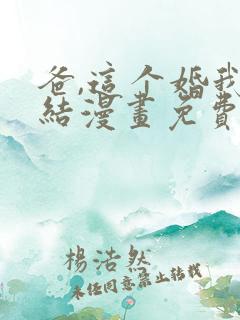 爸,這个婚我
結漫畫免費
楊浩然
未经同意禁止转载